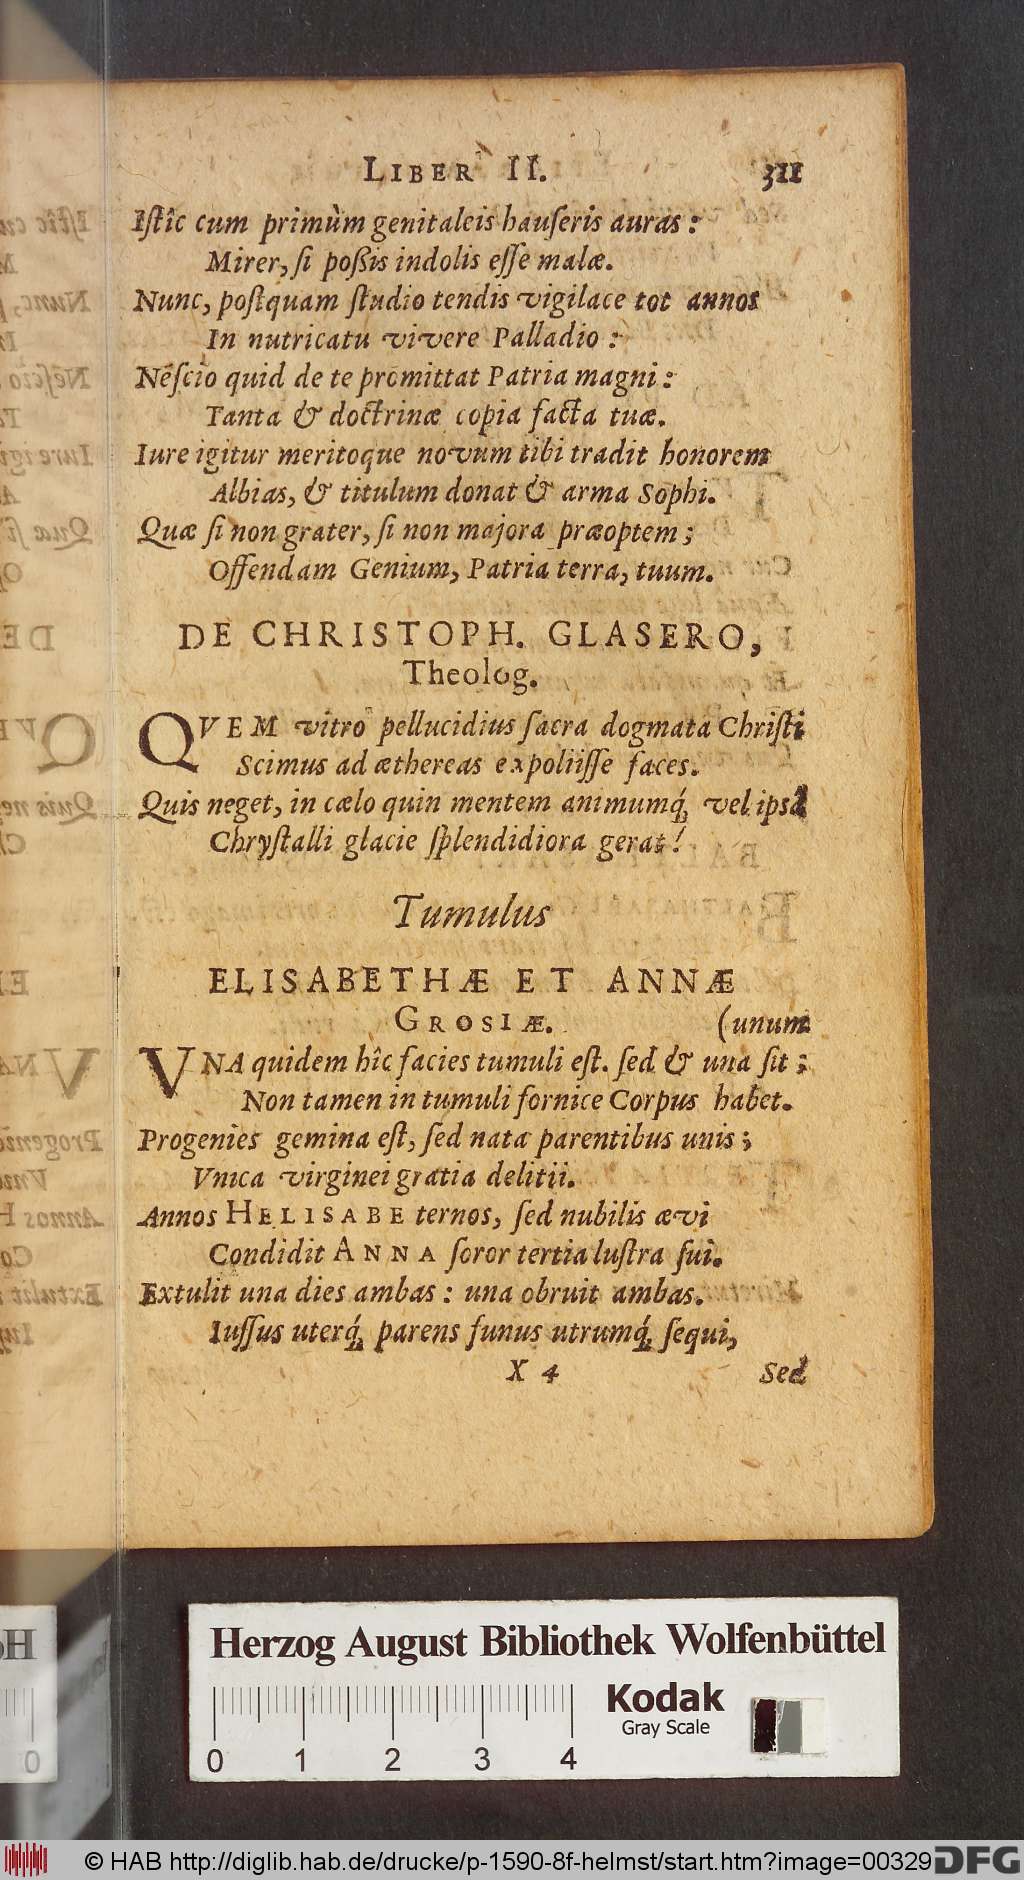 LIBER II. 311
Istîc cum primùm genitaleis hauseris auras:
Mirer, si possis indolis esse malæ.
Nunc, postquam studio tendis vigilace tot annos
In nutricatu vivere Palladio:
Nescio quid de te promittat Patria magni:
Tanta & doctrinæ copia facta tuæ.
Iure igitur meritoque novum tibi tradit honorem
Albias, & titulum donat & arma Sophi.
Quæ si non grater, si non majora præoptem;
Offendam Genium, Patria terra, tuum.
DE CHRISTOPH. GLASERO,
Theolog.
QVEM vitro pellucidius sacra dogmata Christi
Scimus ad æthereas expoliisse faces.
Quis neget, in cælo quin mentem animumq́; vel ipsa
Chrystalli glacie splendidiora gerat!
Tumulus
ELISABETHÆ ET ANNÆ
GROSIÆ. (unum
VNA quidem hîc facies tumuli est. sed & una sit;
Non tamen in tumuli fornice Corpus habet.
Progenies gemina est, sed nata parentibus unis;
Vnica virginei gratia delitii.
Annos HELISABE ternos, sed nubilis ævi
Condidit ANNA soror tertia lustra sui.
Extulit una dies ambas: una obruit ambas.
Iussus uterq́; parens funus utrumq́; sequi,
X 4 Sed
Herzog August Bibliothek Wolfenbüttel
Kodak
Gray Scale
0 1 2 3 4
© HAB http://diglib.hab.de/drucke/p-1590-8f-helmst/start.htm?image=00329
DFG